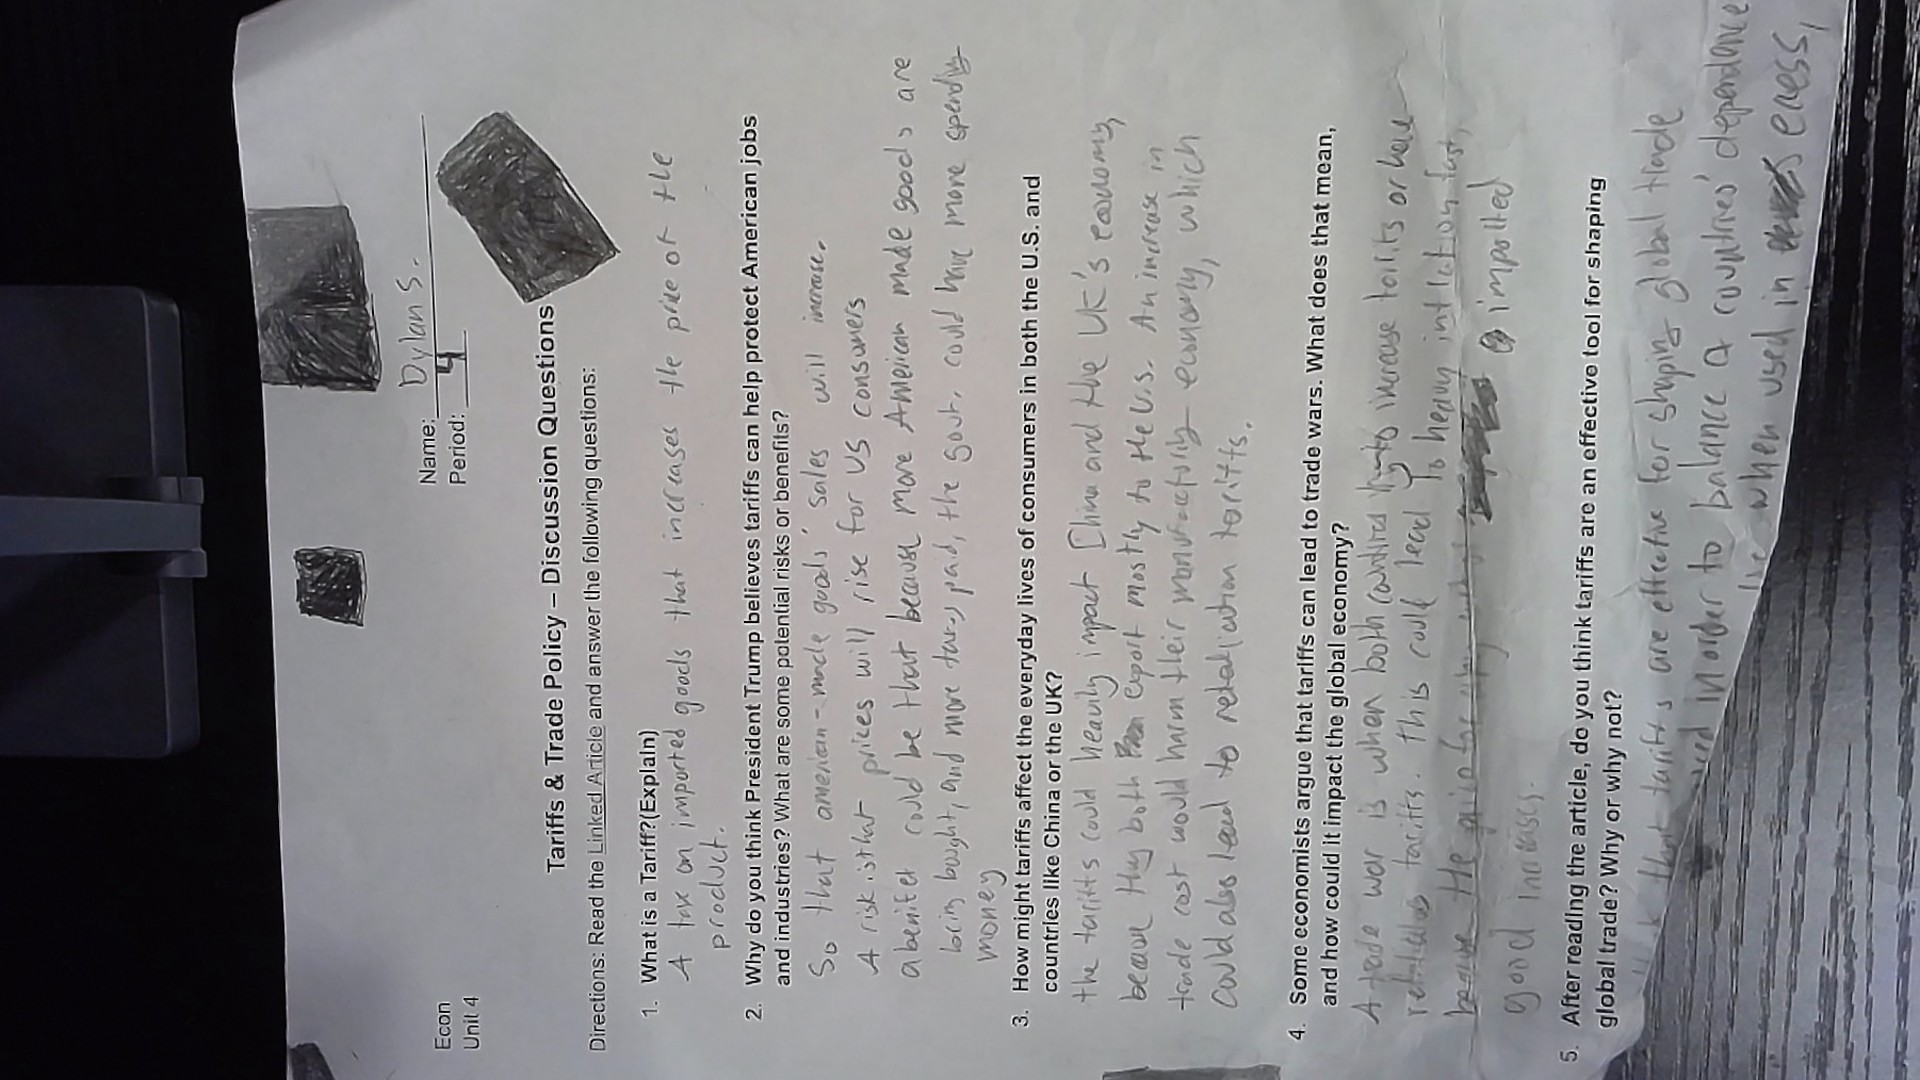 Econ
Unit 4
Name: Dylan S.
Period: 4
Tariffs & Trade Policy – Discussion Questions
Directions: Read the Linked Article and answer the following questions:
1. What is a Tariff?(Explain)
A tax on imported goods that increases the price of the
product.
2. Why do you think President Trump believes tariffs can help protect American jobs
and industries? What are some potential risks or benefits?
So that american-made goods' sales will increase.
A risk is that prices will rise for US consumers
a benifet could be that because more American made goods are
being bought, and more taxes paid, the govt. could have more spending
money
3. How might tariffs affect the everyday lives of consumers in both the U.S. and
countries like China or the UK?
the tariffs could heavily impact China and the UK's economy,
because they both export mostly to the U.S. An increase in
trade cost would harm their manufacturing economy, which
could also lead to retaliation tariffs.
4. Some economists argue that tariffs can lead to trade wars. What does that mean,
and how could it impact the global economy?
A trade war is when both countries increase tariffs or have
tariffs. this could lead to heavy inflation fast,
because the price for imported
good increases.
5. After reading the article, do you think tariffs are an effective tool for shaping
global trade? Why or why not?
that tariffs are effective for shaping global trade
in order to balance a countries' dependance
when used in excess,